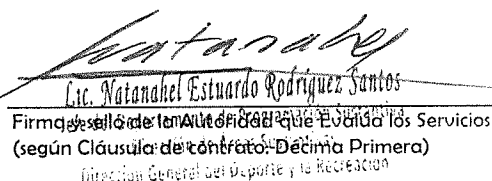 Natanahel
Lic. Natanahel Estuardo Rodríguez Santos
Firma y sello de la Autoridad que Evalúa los Servicios
(según Cláusula de contrato: Décima Primera)
Dirección General del Deporte y la Recreación